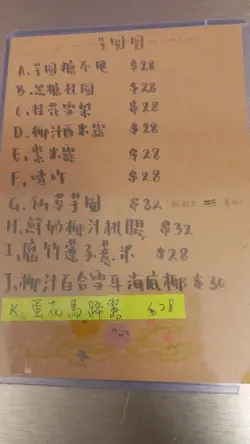 芋圓圓
A. 芋圓糖不甩 $28
B. 黑糖桂圓 $28
C. 桂花雪梨 $28
D. 椰汁西米露 $28
E. 紫米露 $28
F. 喳咋 $28
G. 仙草芋圓 $32
H. 鮮奶椰汁桃膠 $32
I. 腐竹蓮子薏米 $28
J. 椰汁百合雪耳海底椰 $30
K. 蛋花馬蹄露 $28